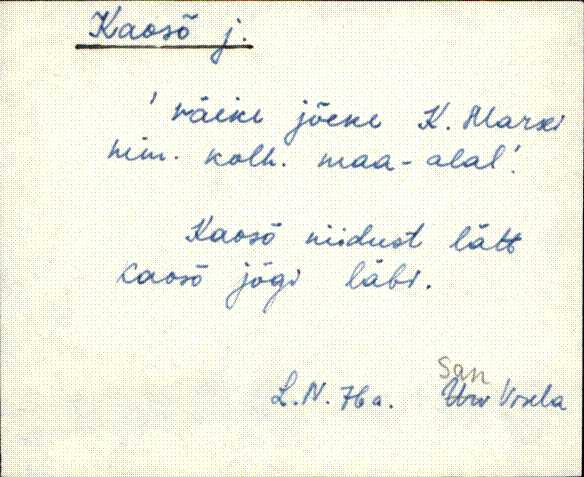 Kaosõ j.
' väike jõeke K. Marxi
nim. kolh. maa-alal'.
Kaosõ niidust lätt
kaosõ jõgi läbi.
San
L.N. 76 a. Urv Visela